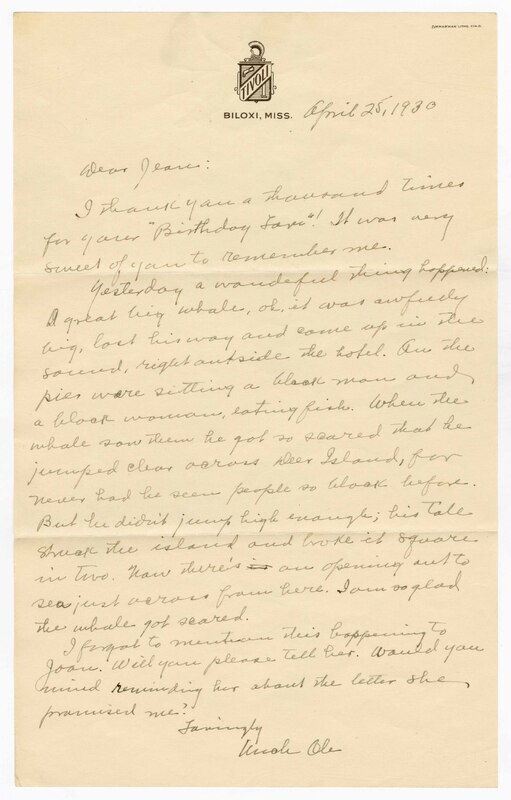 ZIMMERMAN LITHO, CIN. O.
TIVOLI
BILOXI, MISS. April 25, 1930
Dear Jean:
I thank you a thousand times
for your "Birthday Taxi"! It was very
sweet of you to remember me.
Yesterday a wondeful thing happened:
A great big whale, oh, it was awfudly
big, lost his way and came up in the
sound, right outside the hotel. On the
pier were sitting a black man and
a black woman, eating fish. When the
whale saw them he got so scared that he
jumped clear across Deer Island, for
never had he seen people so black before.
But he didn't jump high enough; his tale
struck the island and broke it square
in two. Now there's an opening out to
sea just across from here. I am so glad
the whale got scared.
I forgot to mention this happening to
Joan. Will you please tell her. Would you
mind reminding her about the letter she
promised me?
Lovingly
Uncle Ole